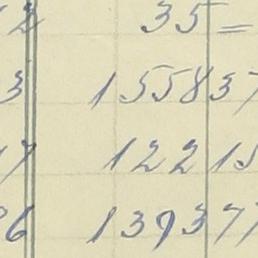 2 35 =
3 155837
7 12215
6 139377